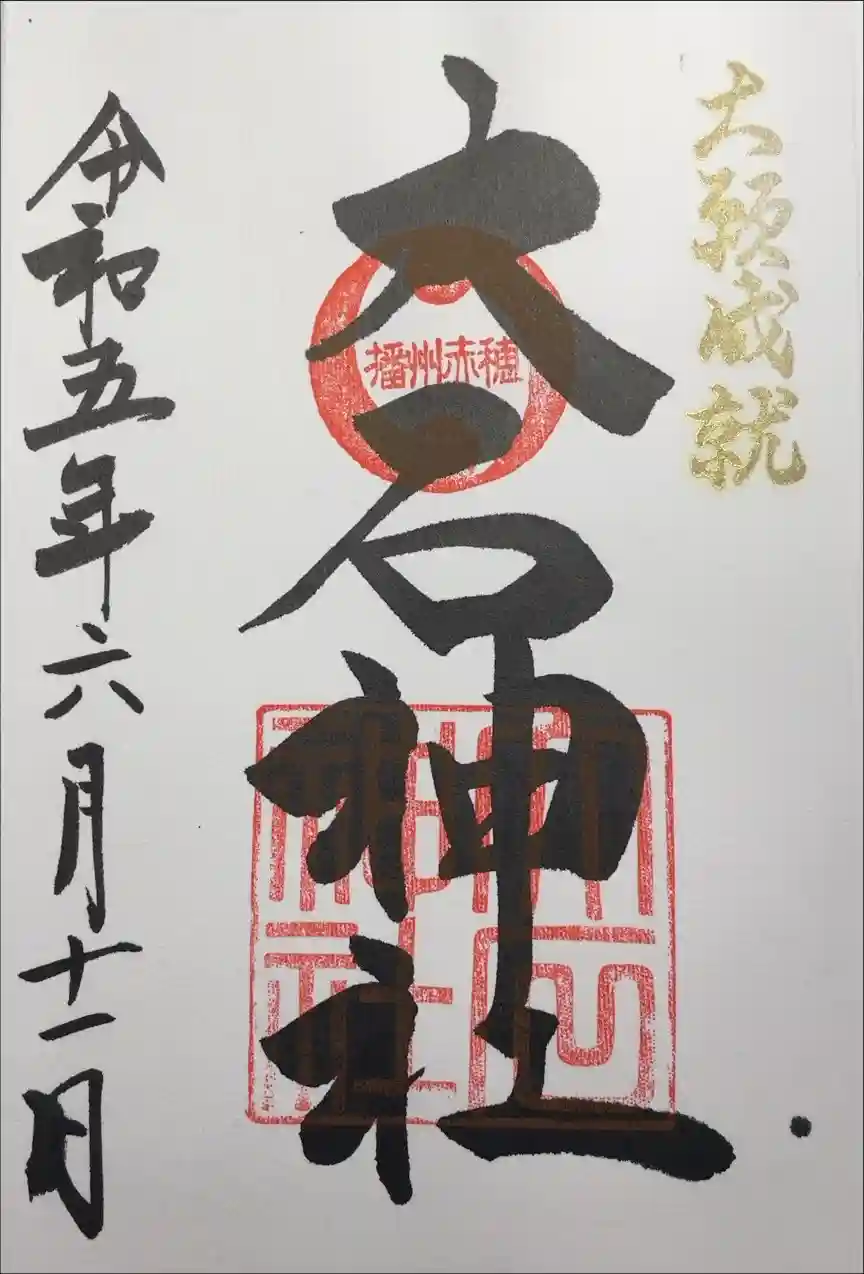 大願成就
大石神社
播州赤穂
令和五年六月十一日